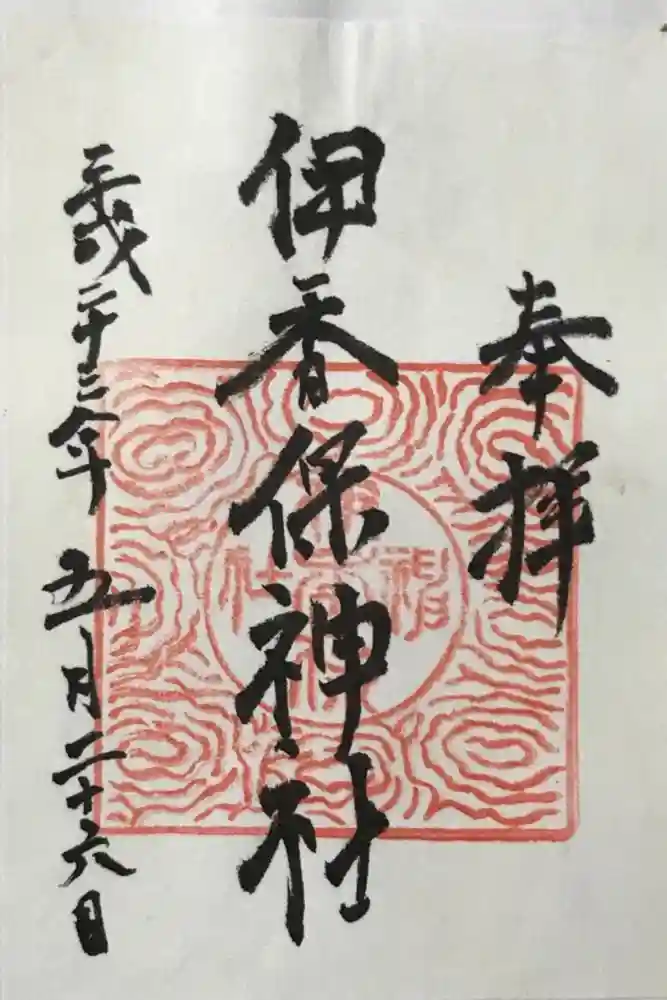 奉拝
伊香保神社
平成二十三年五月二十六日